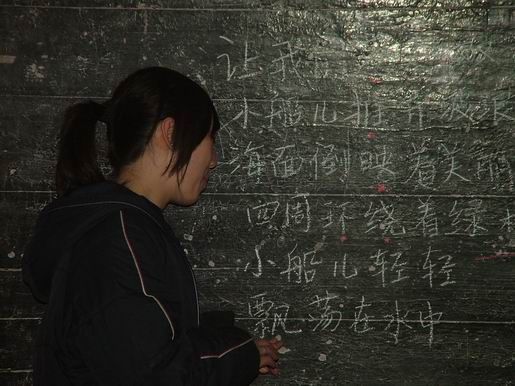 让我
小船儿推开波浪
海面倒映着美丽
四周环绕着绿
小船儿轻轻
飘荡在水中